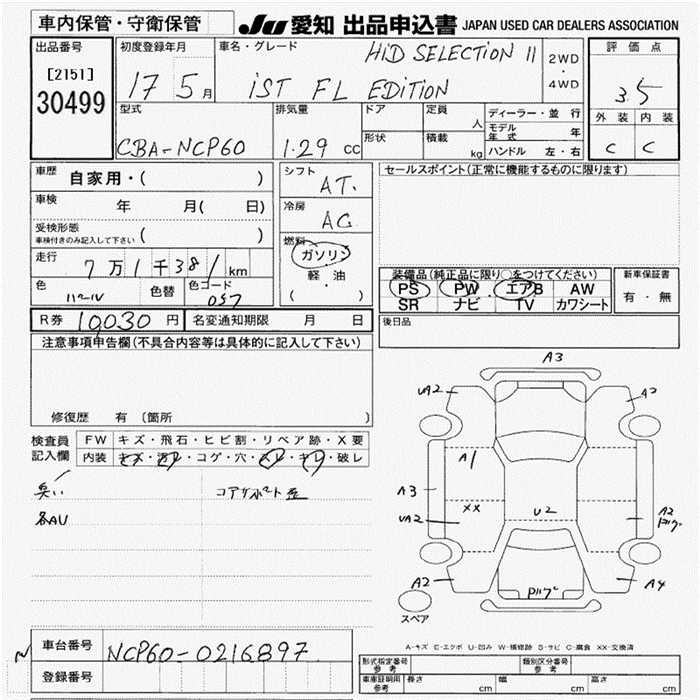 車内保管・守衛保管
JU 愛知 出品申込書 JAPAN USED CAR DEALERS ASSOCIATION
出品番号
[2151]
30499
初度登録年月
17 5月
車名・グレード
HID SELECTION II
iST FL EDITION
2WD
・
4WD
評価点
3.5
外装 内装
C C
型式
CBA-NCP60
排気量
1.29 cc
ドア
形状
定員
人
積載
kg
ディーラー・並行
モデル年式 年
ハンドル 左・右
車歴
自家用・( )
車検 年 月( 日)
受検形態
車検付きのみ記入して下さい ( )
走行 7万1千381km
色 色替 色コード
057
シフト
AT.
冷房
AC
燃料
ガソリン
軽・油
( )
セールスポイント(正常に機能するものに限ります)
装備品(純正品に限り○をつけてください)
PS PW エアB AW
SR ナビ TV カワシート
新車保証書
有・無
R券 10,030円 名変通知期限 月 日
後日品
注意事項申告欄(不具合内容等は具体的に記入して下さい)
修復歴 有 〔箇所 〕
検査員
記入欄
FW キズ・飛石・ヒビ割・リペア跡・X要
内装 キズ・汚レ・コゲ・穴・スレ・キレ・破レ
臭い コアサポート歪
各AU
A3
UA2
A2
A1
A3
XX
U2
UA2
A2
ドルグ
A2
ドルグ
A4
スペア
A-キズ E-エクボ U-凹み W-補修跡 S-サビ C-腐食 XX-交換済
車台番号 NCP60-0216897
登録番号
形式指定番号
参考
類別区分番号
参考
車庫証明用
参考
長さ cm 幅 cm 高さ cm